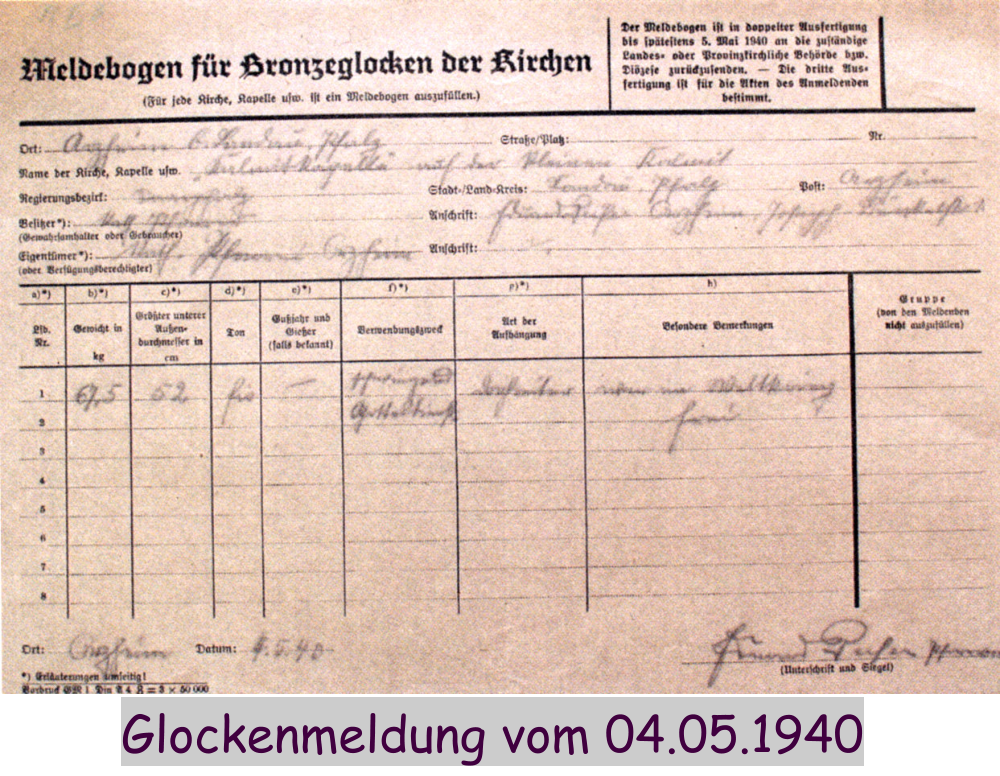 Meldebogen für Bronzeglocken der Kirchen
(Für jede Kirche, Kapelle usw. ist ein Meldebogen auszufüllen.)
Der Meldebogen ist in doppelter Ausfertigung
bis spätestens 5. Mai 1940 an die zuständige
Landes- oder Provinzkirchliche Behörde bzw.
Diözese zurückzusenden. — Die dritte Aus-
fertigung ist für die Akten des Anmeldenden
bestimmt.
Ort: Arzheim b. Landau, Pfalz Straße/Platz: Nr.
Name der Kirche, Kapelle usw. Kalmitkapelle auf der kleinen Kalmit
Regierungsbezirk: Stadt-/Land-Kreis: Landau, Pfalz Post: Arzheim
Besitzer*): Anschrift: Arzheim Joseph
(Gewahrsamhalter oder Gebraucher)
Eigentümer*): Kath. Pfarramt Arzheim Anschrift:
(oder Verfügungsberechtigter)
a)*) b)*) c)*) d)*) e)*) f)*) g)*) h)
Lfd. Nr.
Gewicht in kg
Größter unterer Außen-durchmesser in cm
Ton
Gußjahr und Gießer (falls bekannt)
Verwendungszweck
Art der Aufhängung
Besondere Bemerkungen
Gruppe (von den Meldenden nicht auszufüllen)
1 67,5 52 fis — Dachreiter war im Weltkrieg
2 Gottesdienst frei
3
4
5
6
7
8
Ort: Arzheim Datum: 4.5.40
(Unterschrift und Siegel)
*) Erläuterungen umseitig!
Vordruck GM 1. Din A 4 R = 3 × 50 000
Glockenmeldung vom 04.05.1940